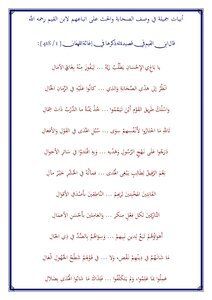 أبيات جميلة في وصف الصحابة والحث على اتباعهم لابن القيم رحمه الله
قال ابن القيم في قصيدته ذكرها في إغاثة اللهفان (
يا باغي الإحسان يطلب ربه ... ليفوز منه بغاية الآمال
انظر إلى هدي الصحابة والذي ... كانوا عليه في الزمان الخالي
واسلك طريق القوم أين تيمموا ... خذ يمنة ما الدرب ذات شمال
تالله ما اختاروا لأنفسهم سوى ... سبل الهدى في القول والأفعال
درجوا على نهج الرسول وهديه ... وبه اقتدوا في سائر الأحوال
نعم الرفيق لطالب يبغي الهدى ... فمآله في الحشر خير مآل
القانتين المخبتين لربهم ... الناطقين بأصدق الأقوال
التاركين لكل فعل سيئ ... والعاملين بأحسن الأعمال
أهواؤهم تبع لدين نبيهم ... وسواهم بالضد في ذي الحال
ما شابهم في دينهم نقص ولا ... في قولهم شطح الجهول الغالي
عملوا بما علموا ولم يتكلفوا ... فلذاك ما شابوا الهدى بضلال